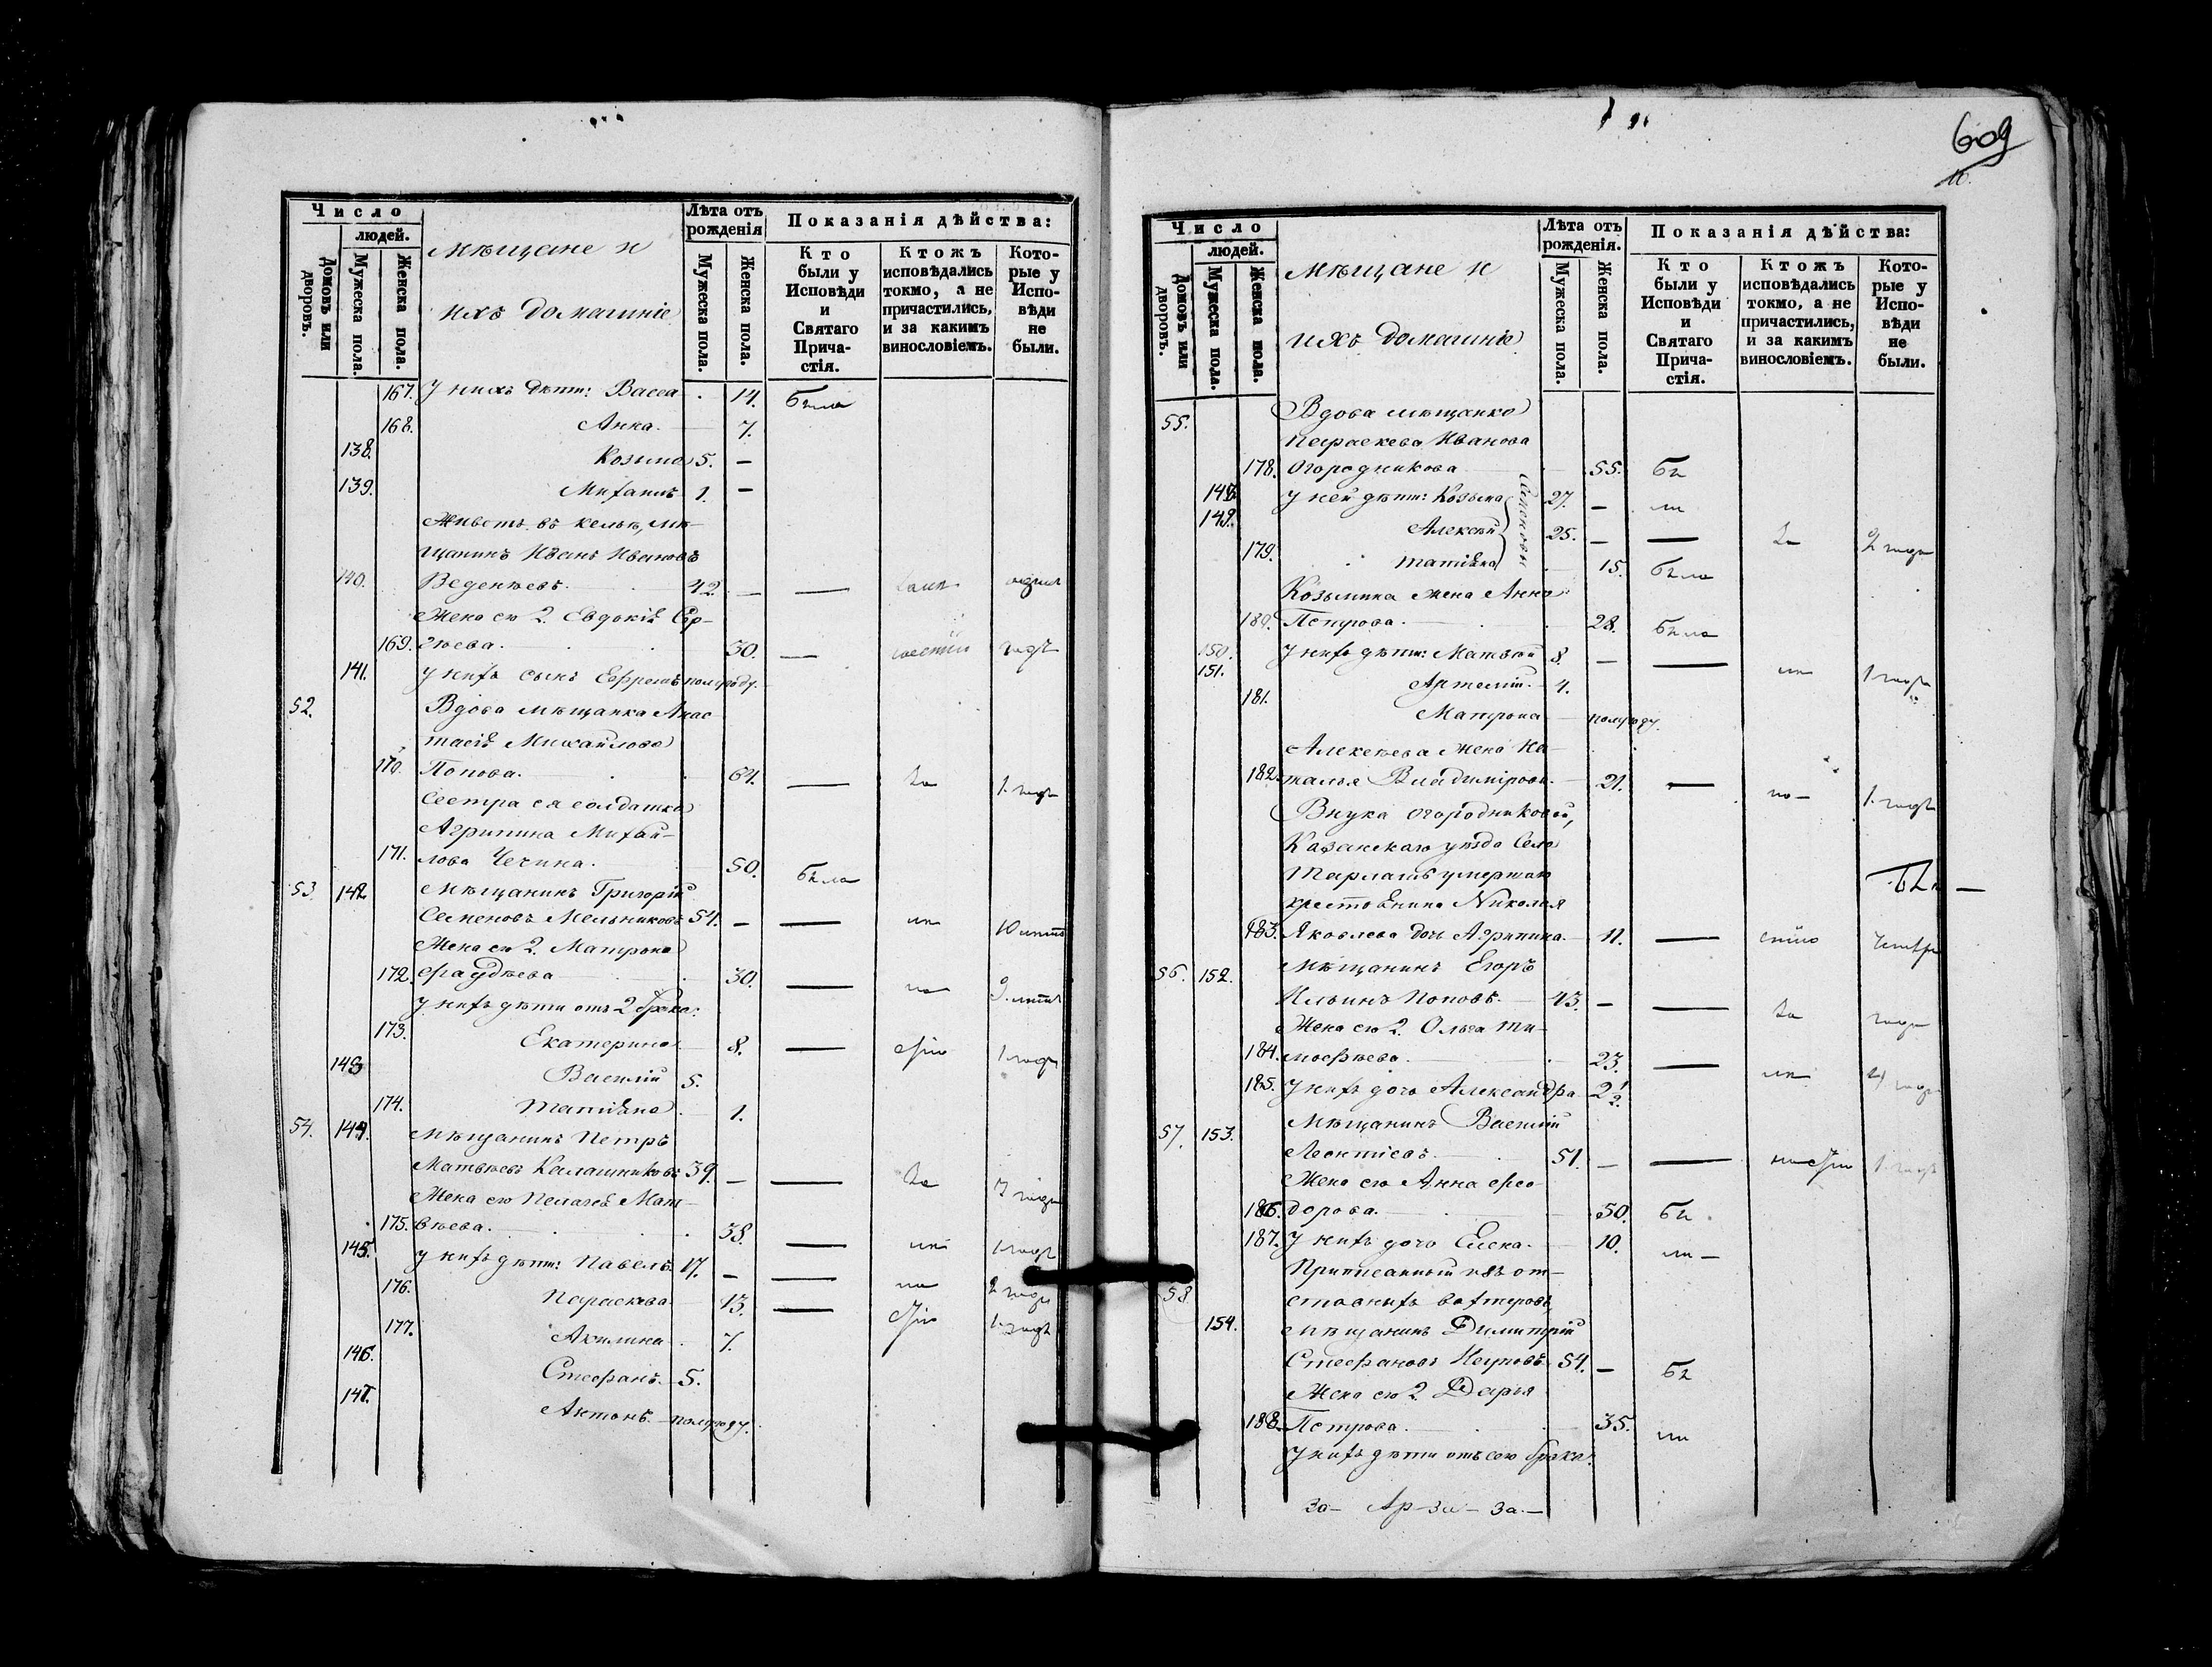 Число
людей.
Домовъ или дворовъ.
Мужеска пола.
Женска пола.
Мѣщане и
ихъ домашніе
Лѣта отъ рожденія
Мужеска пола.
Женска пола.
Показанія дѣйства:
Кто были у Исповѣди и Святаго Причастія.
Ктожъ исповѣдались токмо, а не причастились, и за какимъ винословіемъ.
Которые у Исповѣди не были.
167. У нихъ дѣти: Васса 14. Была
168. Анна. 7.
138. Козьма 5. —
139. Михаилъ 1. —
Живетъ въ кельѣ, мѣ-
щанинъ Иванъ Ивановъ
140. Веденѣевъ. 42. — —
Жена его 2. Евдокія Сер-
169. гѣева. 30. — годъ
141. У нихъ сынъ Ефремъ полугоду.
52. Вдова мѣщанка Анас-
тасія Михайлова
170. Попова. 64. — 1. годъ
Сестра ея солдатка
Агрипина Михай-
171. лова Чечина. 50. Была
53. 142. Мѣщанинъ Григорій
Семеновъ Мельниковъ 54. — — 10 лѣтъ
Жена его 2. Матрона
172. Фаддѣева 30. — лѣтъ
У нихъ дѣти отъ 2 брака:
173. Екатерина 8. — 1 годъ
143. Василій 5.
174. Татіяна 1.
54. 144. Мѣщанинъ Петръ
Матвѣевъ Калашниковъ 39. — — года
Жена его Пелагея Мат-
175. вѣева. 38. — 1 годъ
145. У нихъ дѣти: Павелъ 17. — —
176. Параскева 13. — 2 года
177. Акилина 7. 1 годъ
146. Стефанъ. 5.
147. Антонъ. полугоду.
609
Число
людей.
Домовъ или дворовъ.
Мужеска пола.
Женска пола.
Мѣщане и
ихъ домашніе
Лѣта отъ рожденія.
Мужеска пола.
Женска пола.
Показанія дѣйства:
Кто были у Исповѣди и Святаго Причастія.
Ктожъ исповѣдались токмо, а не причастились, и за какимъ винословіемъ.
Которые у Исповѣди не были.
55. Вдова мѣщанка
Параскева Иванова
178. Огородникова 55. Бы
148. У ней дѣти: Козьма 27. —
149. Алексѣй 25. — — 2 года
179. Татіяна 15. Была
Семеновы
Козьмина жена Анна
180. Петрова. 28. Была
150. У нихъ дѣти: Матвѣй 8. — — 1 годъ
151. Артемій. 4.
181. Матрона полугоду.
Алексѣева жена На-
182. талья Владимірова. 21. — 1. годъ
Внука Огородниковой,
Казанскаго уѣзда Села
Тарлашъ умершаго
крестьянина Николая
183. Яковлева дочь Агрипина. 11. —
56. 152. Мѣщанинъ Егоръ
Ильинъ Поповъ. 43. — — года
Жена его 2. Ольга Ти-
184. моѳѣева. 23. — года
185. У нихъ дочь Александра 2 1/2.
57. 153. Мѣщанинъ Василій
Леонтіевъ. 51. — — 1 годъ
Жена его Анна Ѳео-
186. дорова. 50. Бы
187. У нихъ дочь Елена. 10.
58. Приписанный изъ от-
ставныхъ вахтеровъ,
154. мѣщанинъ Димитрій
Стефановъ 54. — Бы
Жена его 2. Дарья
188. Петрова. 35.
У нихъ дѣти отъ сего брака: